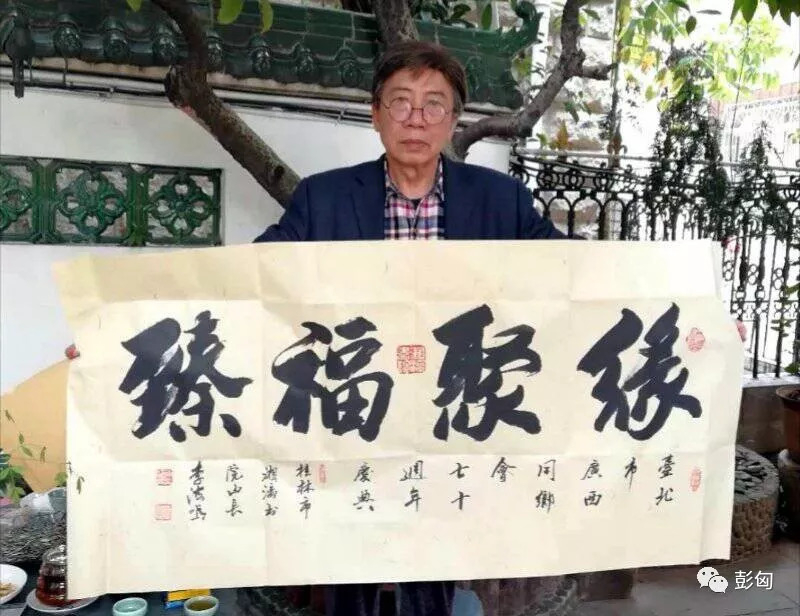 緣聚福臻
臺北
市
廣西
同鄉
會
七十
週年
慶典
桂林市
书
院山長
李
彭匈